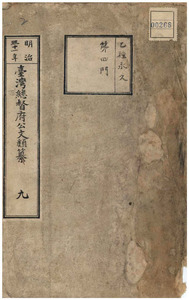 乙種永久
第四門
明治
四十一年
臺灣總督府公文類纂
九